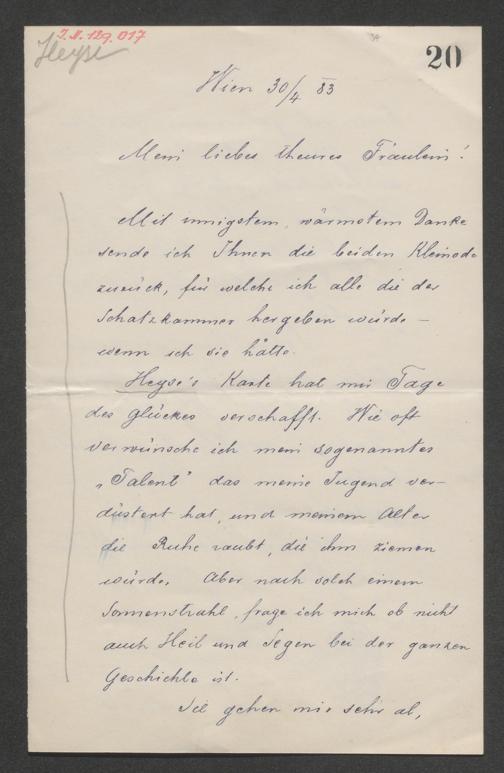 J.N. 129.017
Heyse
20
Wien 30/4 83
Mein liebes theures Fräulein!
Mit innigstem, wärmstem Danke
sende ich Ihnen die beiden Kleinode
zurück, für welche ich alle die der
Schatzkammer hergeben würde –
wenn ich sie hätte.
Heyse's Karte hat mir Tage
des Glückes verschafft. Wie oft
verwünsche ich mein sogenanntes
„Talent" das meine Jugend ver-
düstert hat, und meinem Alter
die Ruhe raubt, die ihm ziemen
würde. Aber nach solch einem
Sonnenstrahl, frage ich mich ob nicht
auch Heil und Segen bei der ganzen
Geschichte ist.
Sie gehen mir sehr ab,